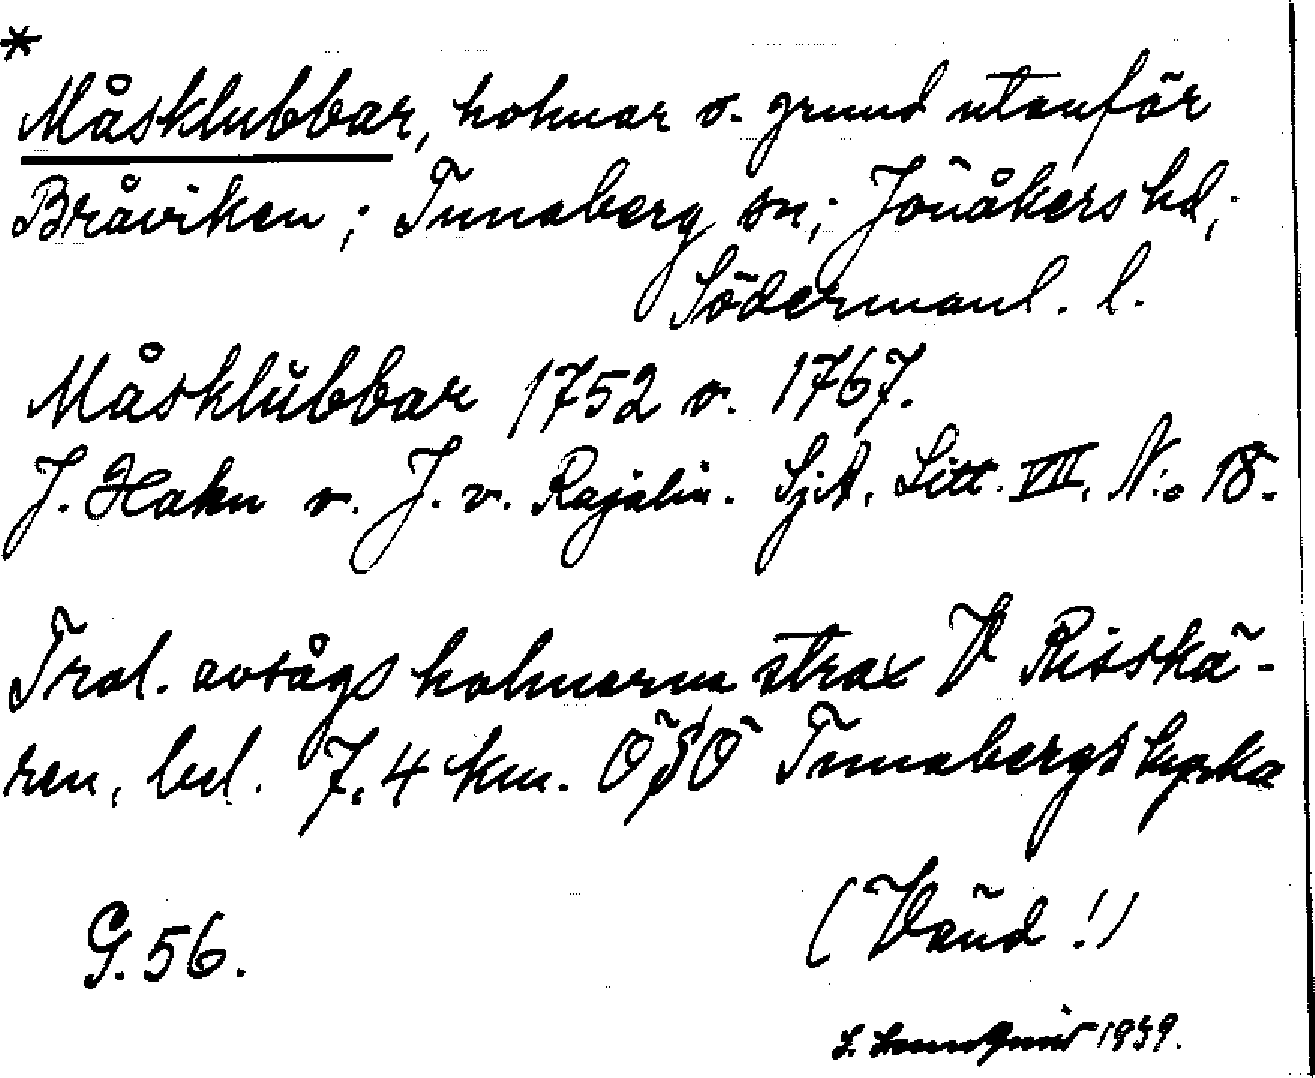 *
Måsklubbar, holmar o. grund utanför
Bråviken; Tunaberg sn; Jönåkers hd;
Södermanl. l.
Måsklubbar 1752 o. 1767.
J. Hahn o. J. v. Rajalin. SjA. Litt. VII. N:o 18.
Trol. avsågs holmarna strax V Risskä-
ren, bel. 7,4 km. ÖSÖ Tunabergs kyrka
G. 56.
(Vänd!)
1939.